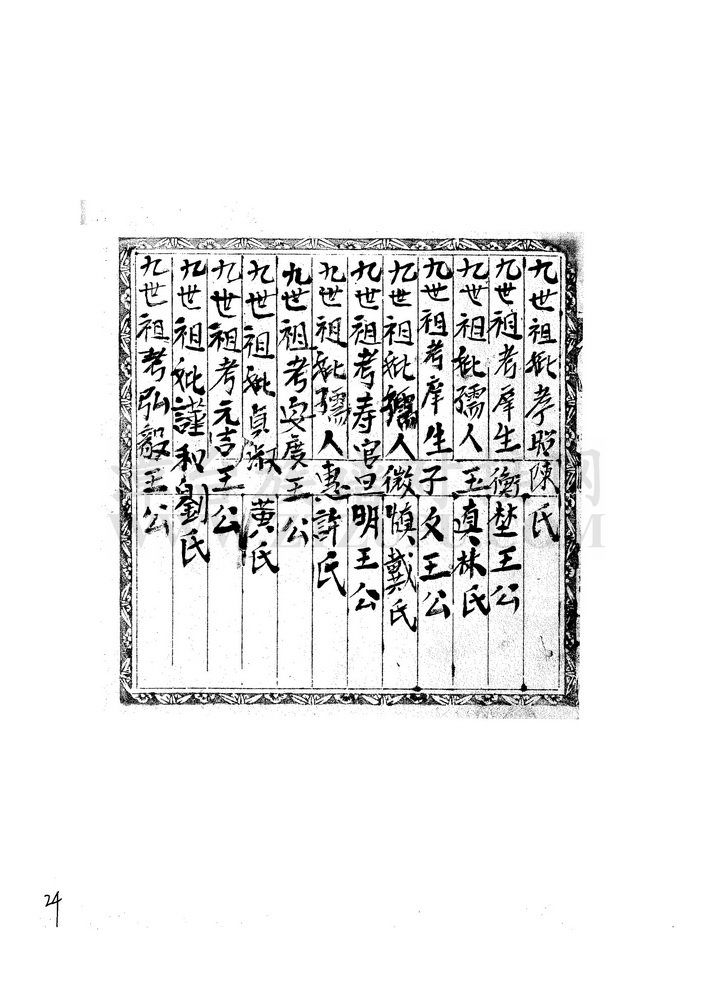 九世祖妣孝聪陳氏
九世祖考庠生衡埜王公
九世祖妣孺人玉真林氏
九世祖考庠生子文王公
九世祖妣孺人微慎戴氏
九世祖考寿官曰明王公
九世祖妣孺人惠許氏
九世祖考安度王公
九世祖妣貞淑黄氏
九世祖考元吉王公
九世祖妣謹和劉氏
九世祖考弘毅王公
24